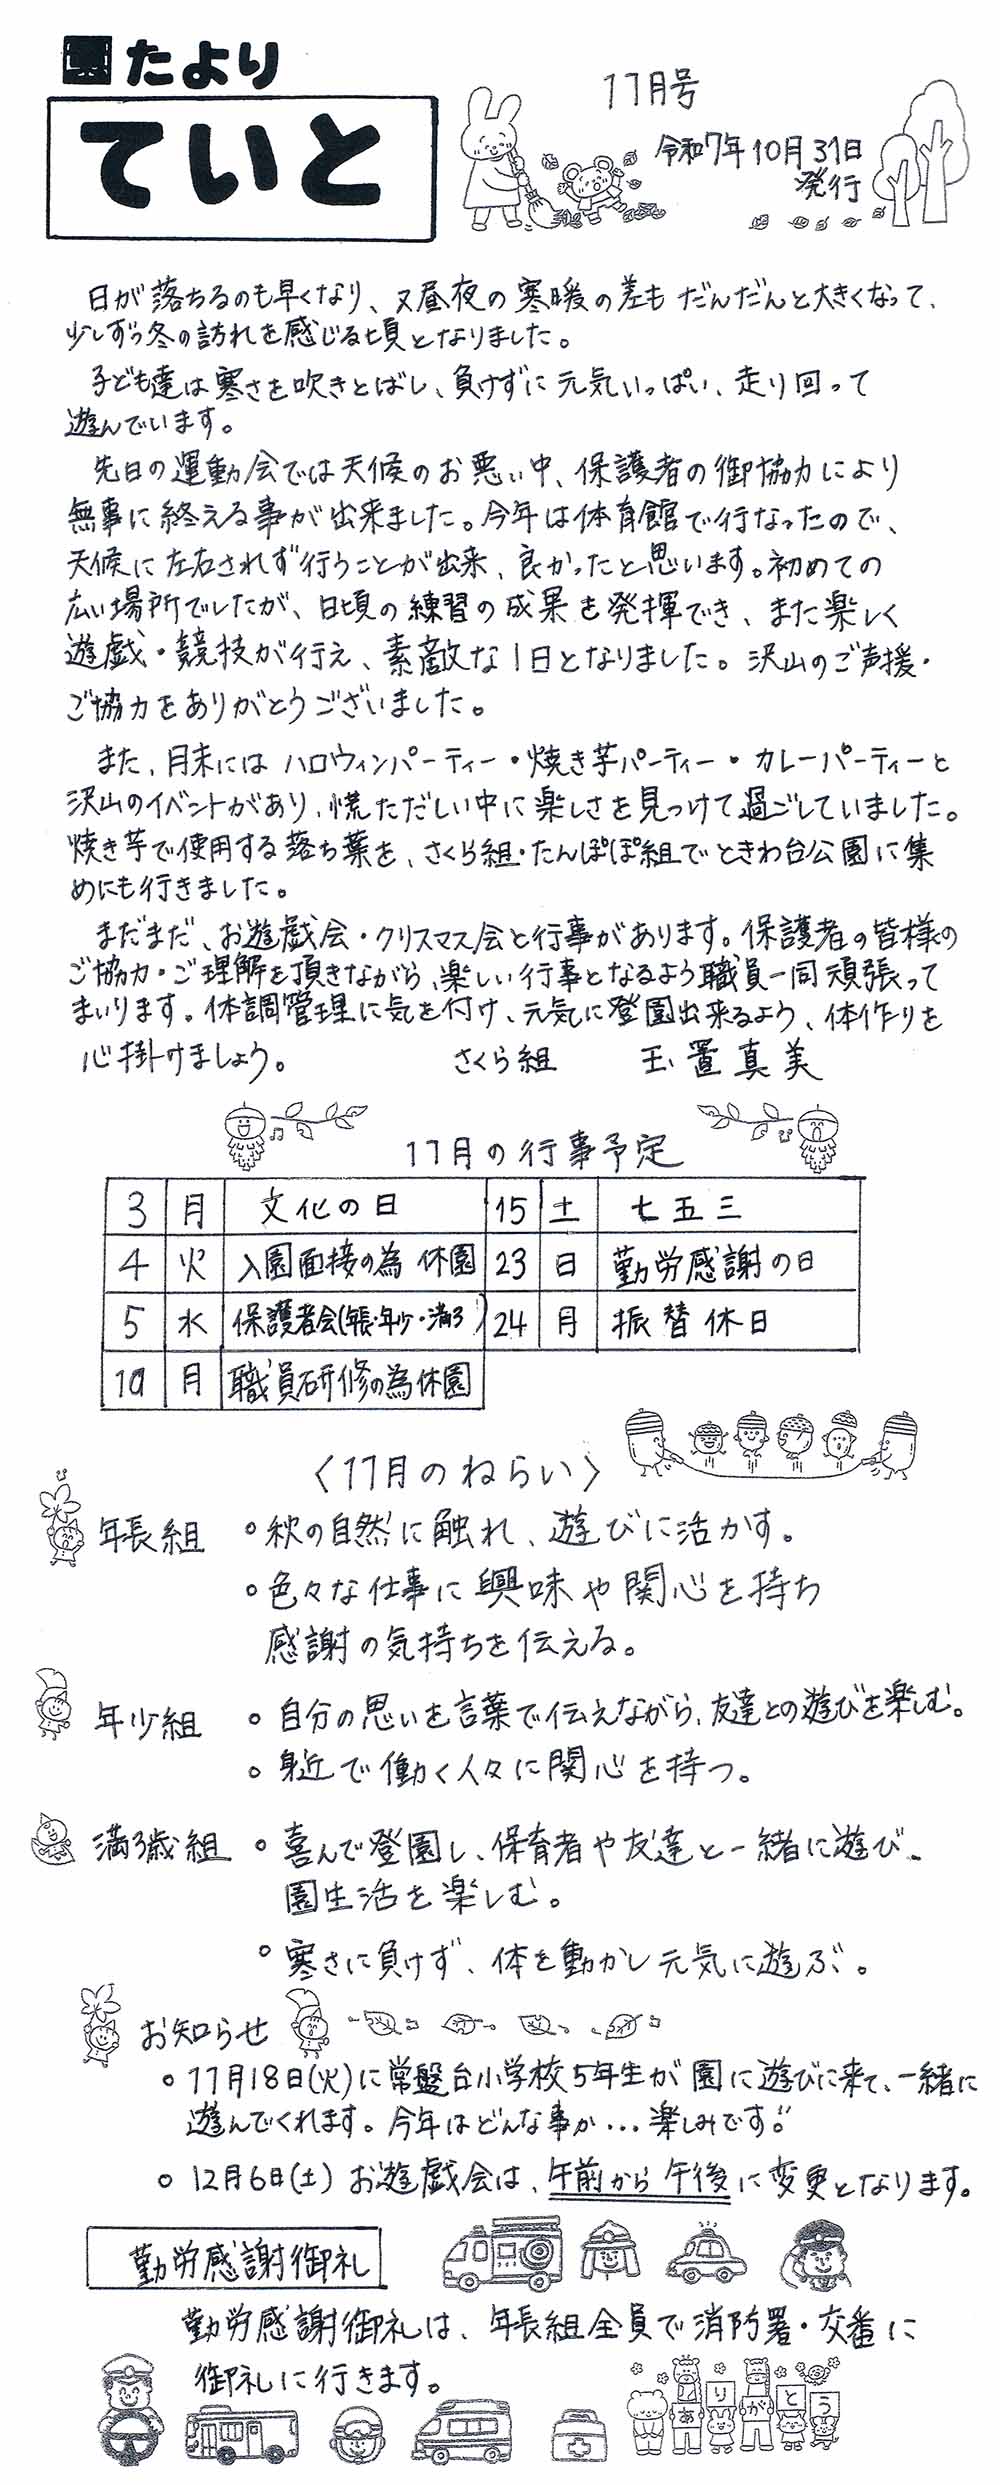 園たより
ていと
11月号
令和7年10月31日
発行
日が落ちるのも早くなり、又昼夜の寒暖の差もだんだんと大きくなって、
少しずつ冬の訪れを感じる頃となりました。
子ども達は寒さを吹きとばし、負けずに元気いっぱい、走り回って
遊んでいます。
先日の運動会では天候のお悪い中、保護者の御協力により
無事に終える事が出来ました。今年は体育館で行なったので、
天候に左右されず行うことが出来、良かったと思います。初めての
広い場所でしたが、日頃の練習の成果を発揮でき、また楽しく
遊戯・競技が行え、素敵な1日となりました。沢山のご声援・
ご協力をありがとうございました。
また、月末にはハロウィンパーティー・焼き芋パーティー・カレーパーティーと
沢山のイベントがあり、慌ただしい中に楽しさを見つけて過ごしていました。
焼き芋で使用する落ち葉を、さくら組・たんぽぽ組でときわ台公園に集
めにも行きました。
まだまだ、お遊戯会・クリスマス会と行事があります。保護者の皆様の
ご協力・ご理解を頂きながら、楽しい行事となるよう職員一同頑張って
まいります。体調管理に気を付け、元気に登園出来るよう、体作りを
心掛けましょう。 さくら組 玉置真美
11月の行事予定
3 月 文化の日 15 土 七五三
4 火 入園面接の為 休園 23 日 勤労感謝の日
5 水 保護者会(年長・年少・満3) 24 月 振替休日
10 月 職員研修の為休園
〈11月のねらい〉
年長組 ○秋の自然に触れ、遊びに活かす。
○色々な仕事に興味や関心を持ち
感謝の気持ちを伝える。
年少組 ○自分の思いを言葉で伝えながら、友達との遊びを楽しむ。
○身近で働く人々に関心を持つ。
満3歳組 ○喜んで登園し、保育者や友達と一緒に遊び、
園生活を楽しむ。
○寒さに負けず、体を動かし元気に遊ぶ。
お知らせ
○11月18日(火)に常盤台小学校5年生が園に遊びに来て、一緒に
遊んでくれます。今年はどんな事か...楽しみです!!
○12月6日(土)お遊戯会は、午前から午後に変更となります。
勤労感謝御礼
勤労感謝御礼は、年長組全員で消防署・交番に
御礼に行きます。
ありがとう